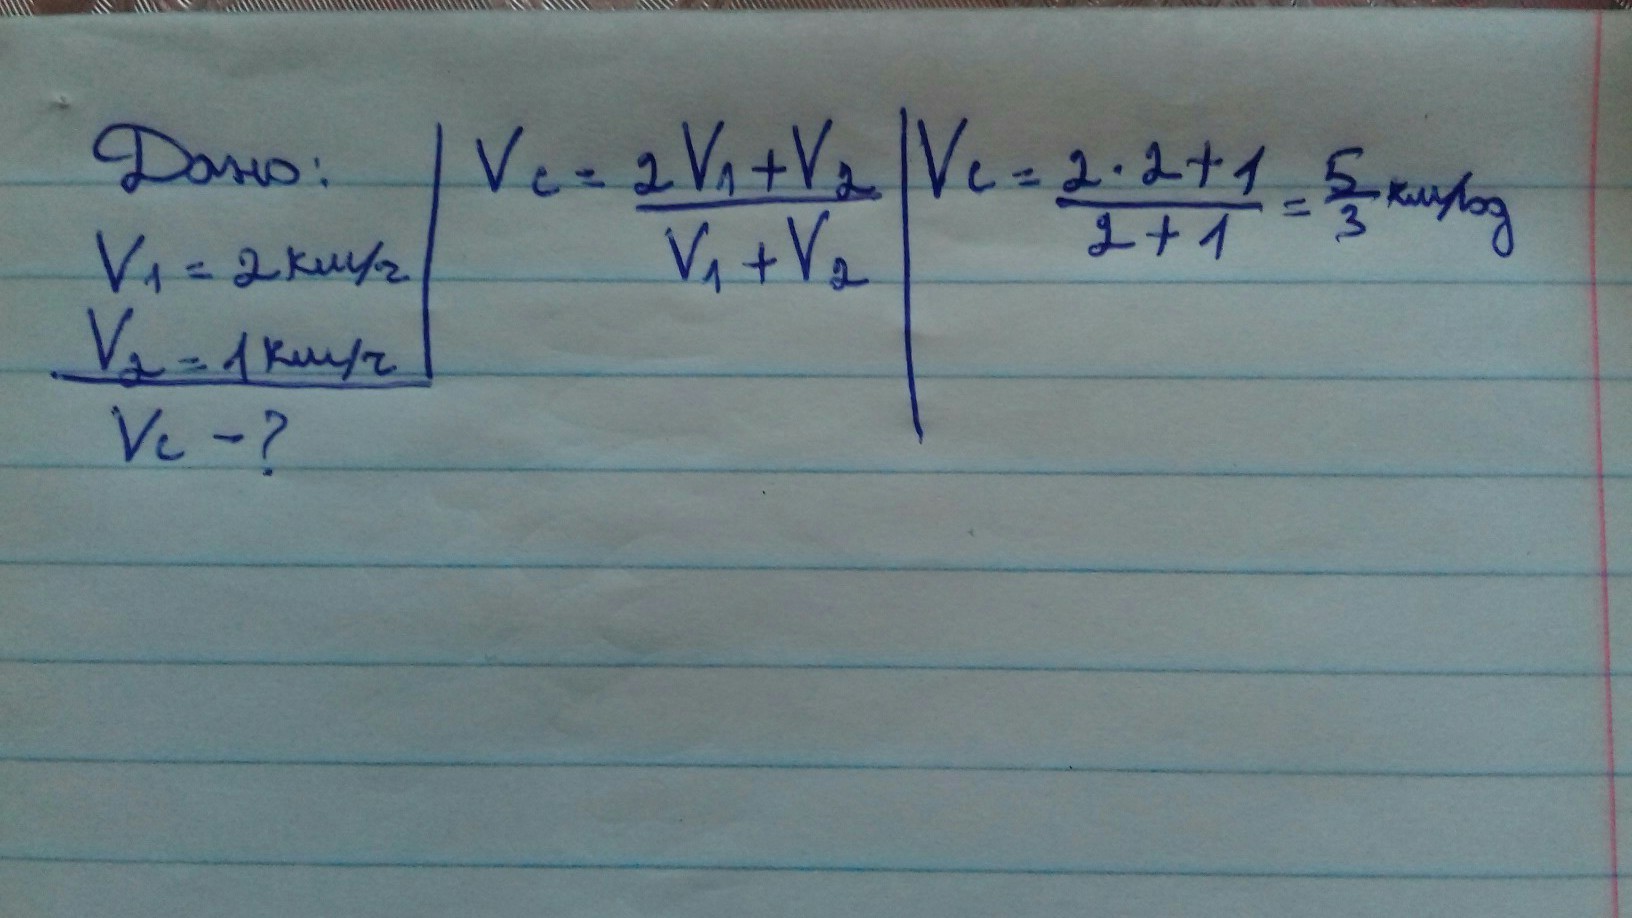 Дано:
V₁ = 2 км/ч
V₂ = 1 км/ч
Vc - ?
Vc = (2V₁ + V₂) / (V₁ + V₂)
Vc = (2 · 2 + 1) / (2 + 1) = 5/3 км/год